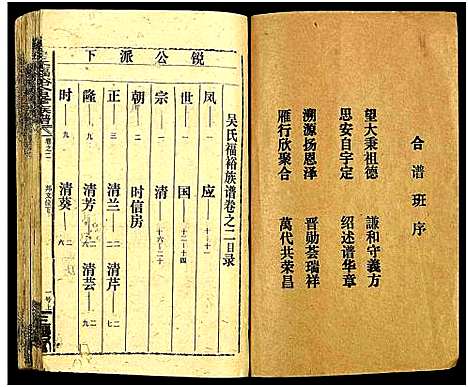 合谱班序
望大秉祖德　谦和守義方
思安自字定　绍述谱华章
溯源扬恩泽　晋勋荟瑞祥
雁行欣聚合　萬代共荣昌
吴氏福裕族谱卷之二目录
锐公派下
凤—一　应—十—十一
世—一　国—十二—十四
宗—一　清—十六—二十
朝—二　时信房
正—三　清兰—二　清芹—七二
隆—六　清芳—二　清芸—九二
时—九　清葵—六二
卷之二
一号上